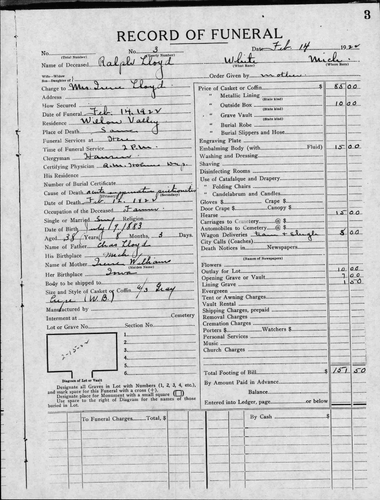 3
RECORD OF FUNERAL
No. 3 Date Feb 14 1922
(Total Number) (Yearly Number)
Name of Deceased Ralph Lloyd White Mich.
(What Race) (Where Born)
Charge to Mrs. Irene Lloyd Order Given by mother
Address
How Secured
Date of Funeral Feb. 14, 1922
Residence Willow Valley
Place of Death Same
Funeral Services at
Time of Funeral Service 2 P.M.
Clergyman
Certifying Physician
His Residence
Number of Burial Certificate
Cause of Death acute
(Secondary)
Date of Death Feb. 12, 1922
Occupation of the Deceased Farmer
Single or Married Sing Religion
Date of Birth July 9, 1883
Aged 38 Years 7 Months, 3 Days.
Name of Father Chas Lloyd
His Birthplace Mich.
Name of Mother Irene Williams
(Maiden Name)
Her Birthplace Iowa
Body to be shipped to
Size and Style of Casket or Coffin Gray
(W.B.)
Manufactured by
Interment at Cemetery
Lot or Grave No. Section No.
1.
2.
3.
4.
5.
6.
Diagram of Lot or Vault
Designate all Graves in Lot with Numbers (1, 2, 3, 4, etc.),
and mark space for this Funeral with a cross (+).
Designate place for Monument with a small square
Use space to right of Diagram for the names of those
buried in Lot.
Price of Casket or Coffin $ 85 00
(State kind)
" Metallic Lining
(State kind)
" Outside Box 10 00
(State kind)
" Grave Vault
(State kind)
" Burial Robe
(State kind)
" Burial Slippers and Hose
Engraving Plate
Embalming Body (with Fluid) 15 00
Washing and Dressing
Shaving
Disinfecting Rooms
Use of Catafalque and Drapery
" Folding Chairs
" Candelabrum and Candles
Gloves $ Crape $
Door Crape $ Canopy $
Hearse 15 00
Carriages to Cemetery @ $
Automobiles to Cemetery @ $
Wagon Deliveries 8 00
City Calls (Coaches)
Death Notices in Newspapers
(Names of Newspapers)
Flowers
Outlay for Lot 10 00
Opening Grave or Vault 7 00
Lining Grave 1 50
Evergreen
Tent or Awning Charges
Vault Rental
Shipping Charges, prepaid
Removal Charges
Cremation Charges
Porters $ Watchers $
Personal Services
Music
Church Charges
Total Footing of Bill $ 151 50
By Amount Paid in Advance
Balance
Entered into Ledger, page or below.
To Funeral Charges, Total, $ By Cash $